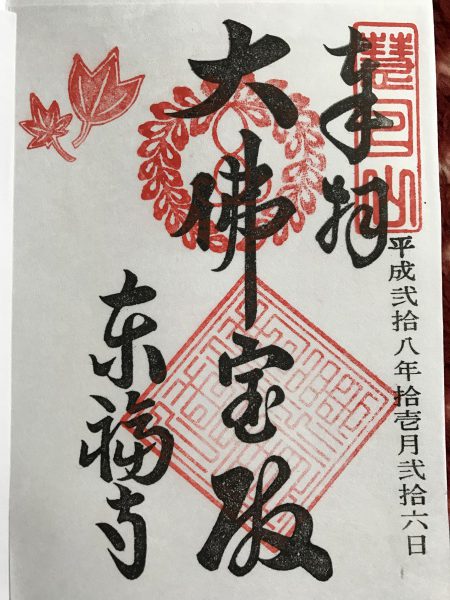 慧日山
平成弐拾八年拾壱月弐拾六日
奉拝
大佛宝殿
東福寺